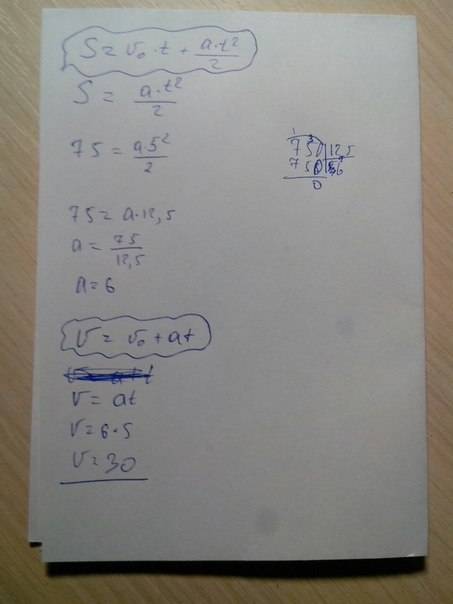 S = v₀·t + a·t²/2
S = a·t²/2
75 = a·5²/2
75 = a·12,5
a = 75/12,5
a = 6
v = v₀ + at
v = at
v = 6·5
v = 30
750 | 125
750
0